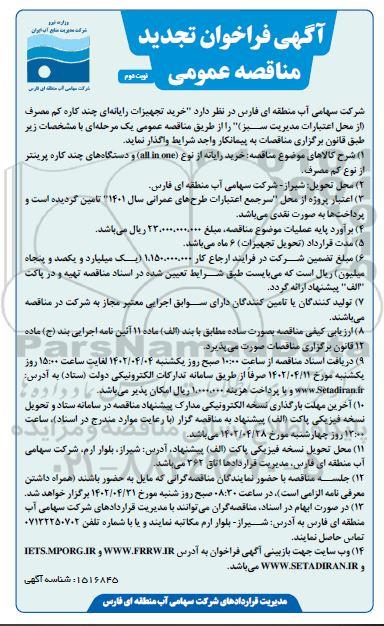 وزارت نیرو
شرکت مدیریت منابع آب ایران
شرکت سهامی آب منطقه ای فارس
آگهی فراخوان تجدید
مناقصه عمومی
نوبت دوم
شرکت سهامی آب منطقه ای فارس در نظر دارد "خرید تجهیزات رایانه‌ای چند کاره کم مصرف
(از محل اعتبارات مدیریت سبز)" را از طریق مناقصه عمومی یک مرحله‌ای با مشخصات زیر
طبق قانون برگزاری مناقصات به پیمانکار واجد شرایط واگذار نماید.
۱) شرح کالاهای موضوع مناقصه: خرید رایانه از نوع (all in one) و دستگاه‌های چند کاره پرینتر
از نوع کم مصرف.
۲) محل تحویل: شیراز- شرکت سهامی آب منطقه ای فارس.
۳) اعتبار پروژه از محل "سرجمع اعتبارات طرح‌های عمرانی سال ۱۴۰۱" تامین گردیده است و
پرداخت‌ها به صورت نقدی می‌باشد.
۴) برآورد پایه عملیات موضوع مناقصه، مبلغ ۲۳.۰۰۰.۰۰۰.۰۰۰ ریال می‌باشد.
۵) مدت قرارداد (تحویل تجهیزات) ۶ ماه می‌باشد.
۶) مبلغ تضمین شرکت در فرایند ارجاع کار ۱.۱۵۰.۰۰۰.۰۰۰ (یک میلیارد و یکصد و پنجاه
میلیون) ریال است که می‌بایست طبق شرایط تعیین شده در اسناد مناقصه تهیه و در پاکت
"الف" پیشنهاد ارائه گردد.
۷) تولید کنندگان یا تامین کنندگان دارای سوابق اجرایی معتبر مجاز به شرکت در مناقصه
می‌باشند.
۸) ارزیابی کیفی مناقصه بصورت ساده مطابق با بند (الف) ماده ۱۱ آئین نامه اجرایی بند (ج) ماده
۱۲ قانون برگزاری مناقصات صورت می‌پذیرد.
۹) دریافت اسناد مناقصه از ساعت ۱۰:۰۰ صبح روز یکشنبه ۱۴۰۲/۰۴/۰۴ لغایت ساعت ۱۵:۰۰ روز
یکشنبه مورخ ۱۴۰۲/۰۴/۱۱ صرفاً از طریق سامانه تدارکات الکترونیکی دولت (ستاد) به آدرس:
www.Setadiran.ir و با پرداخت هزینه ۱.۰۰۰.۰۰۰ ریال امکان پذیر می‌باشد.
۱۰) آخرین مهلت بارگذاری نسخه الکترونیکی مدارک پیشنهاد مناقصه در سامانه ستاد و تحویل
نسخه فیزیکی پاکت (الف) پیشنهاد به مناقصه گزار (با رعایت موارد مندرج در اسناد)، ساعت
۱۲:۰۰ روز چهارشنبه مورخ ۱۴۰۲/۰۴/۲۸ می‌باشد.
۱۱) محل تحویل نسخه فیزیکی پاکت (الف) پیشنهاد، آدرس: شیراز، بلوار ارم، شرکت سهامی
آب منطقه ای فارس، مدیریت قراردادها اتاق ۳۶۲ می‌باشد.
۱۲) جلسه مناقصه با حضور نمایندگان مناقصه‌گرانی که مایل به حضور باشند (همراه داشتن
معرفی نامه الزامی است)، در ساعت ۰۸:۳۰ صبح روز شنبه مورخ ۱۴۰۲/۰۴/۳۱ برگزار خواهد شد.
۱۳) در صورت ابهام در اسناد، مناقصه‌گران می‌توانند با مدیریت قراردادهای شرکت سهامی آب
منطقه ای فارس به آدرس: شیراز- بلوار ارم مکاتبه نمایند و یا با شماره تلفن ۰۷۱۳۲۲۵۰۷۰۲
تماس حاصل نمایند.
۱۴) وب سایت جهت بازبینی آگهی فراخوان به آدرس WWW.FRRW.IR و IETS.MPORG.IR
و WWW.SETADIRAN.IR می‌باشد.
شناسه آگهی :۱۵۱۶۸۴۵
مدیریت قراردادهای شرکت سهامی آب منطقه ای فارس